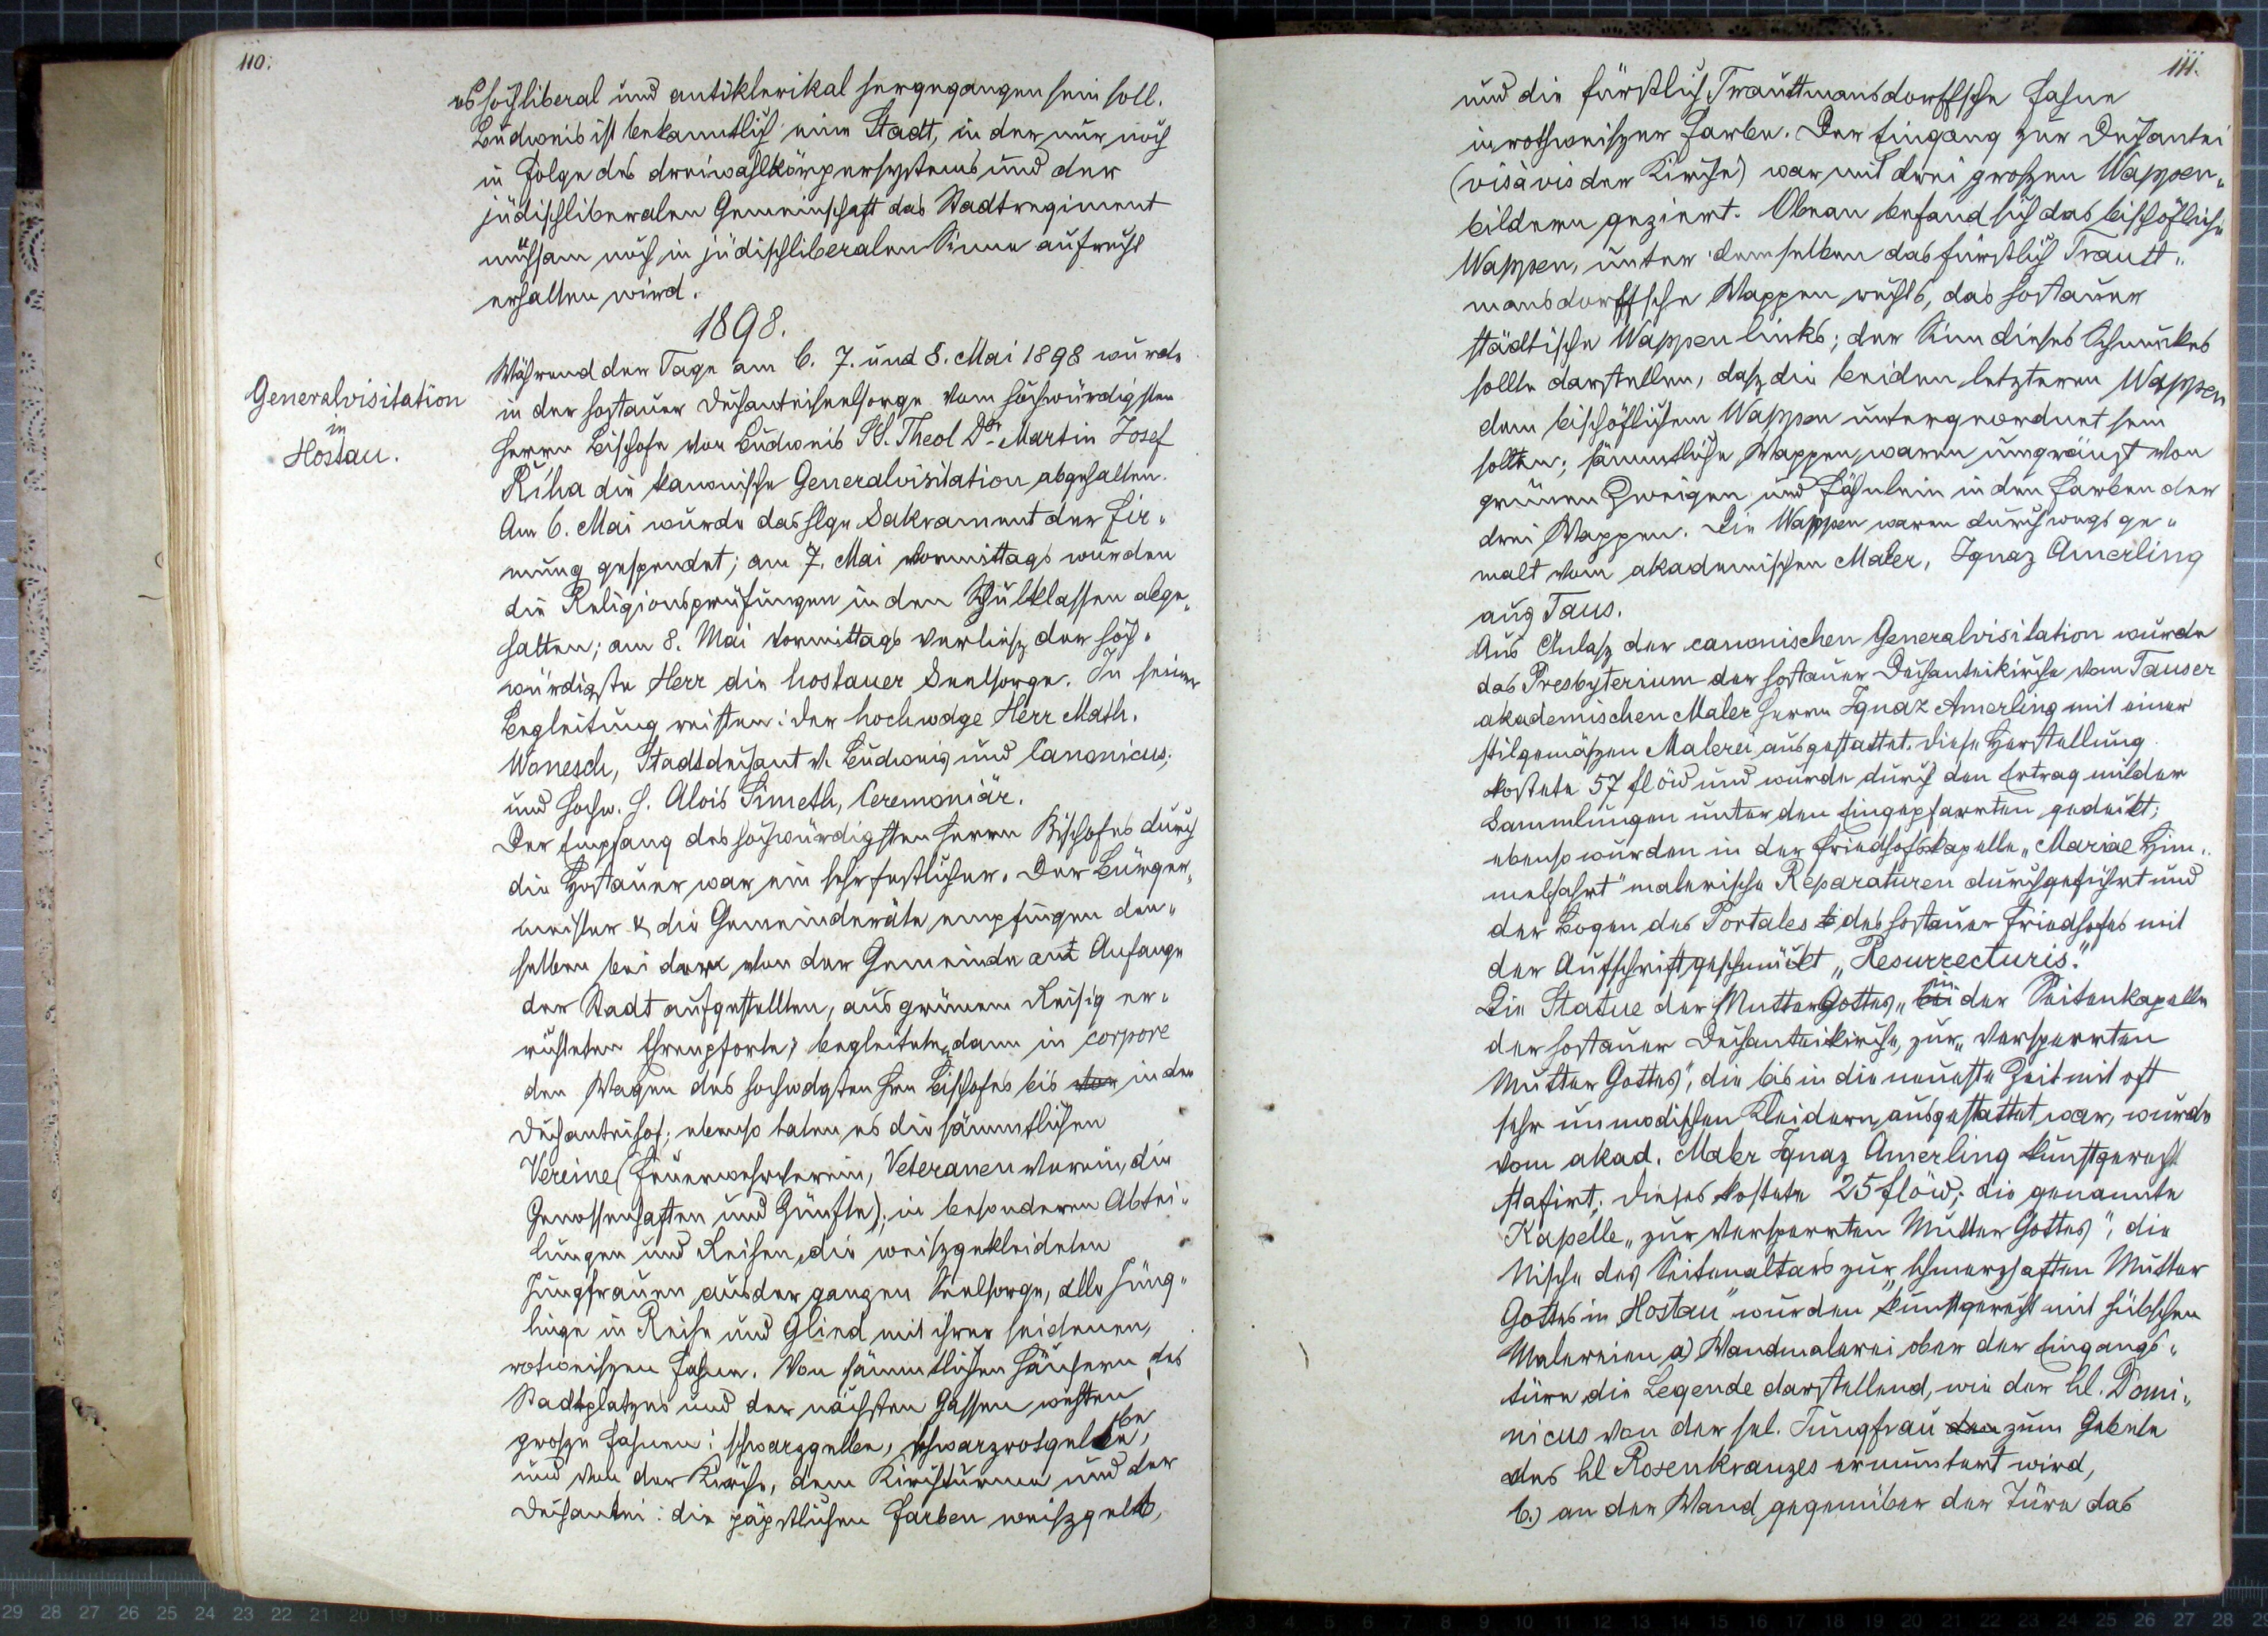 110.
es hochliberal und antiklerikal hergegangen sein soll.
Budweis ist bekanntlich eine Stadt, in der nur noch
in Folge des dreiwahlkörpersystems und der
jüdischliberalen Gemeinschaft das Stadtregiment
mühsam noch in jüdischliberalen Sinne aufrecht
erhalten wird.
1898.
Generalvisitation
in
Hostau.
Während der Tage am 6. 7. und 8. Mai 1898 wurde
in der hostauer Dechanteiseelsorge vom hochwürdigsten
Herrn Bischofe von Budweis SS. Theol Dr. Martin Josef
Říha die kanonische Generalvisitation abgehalten.
Am 6. Mai wurde das hlge Sakrament der Fir„
mung gespendet; am 7. Mai vormittags wurden
die Religionsprüfungen in den Schulklassen abge„
halten; am 8. Mai vormittags verliesz der hoch„
würdigste Herr die hostauer Seelsorge. In seiner
Begleitung reisten: der hochwdge Herr Math.
Wonesch, Stadtdechant v. Budweis und Canonicus;
und hochw. H. Alois Simeth, Ceremoniär.
Der Empfang des hochwürdigsten Herrn Bischofes durch
die Hostauer war ein sehr festlicher. Der Bürger„
meister & die Gemeinderäte empfingen den„
selben bei der von der Gemeinde am Anfange
der Stadt aufgestellten, aus grünem Reisig er„
richteten Ehrenpforte; begleiteten dann in corpore
den Wagen des hochwdgsten Hrn Bischofes bis vor in den
Dechanteihof; ebenso taten es die sämmtlichen
Vereine (Feuerwehrverein, Veteranenverein, die
Genossenschaften und Zünfte); in besonderen Abtei„
lungen und Reihen, die weiszgekleideten
Jungfrauen aus der ganzen Seelsorge, alle Jüng„
linge in Reihe und Glied mit ihrer seidenen,
rotweiszen Fahne. Von sämmtlichen Häusern des
Stadtplatzes und der nächsten Gassen wehten
grosze Fahnen: schwarzgelbe, schwarzrotgelbe,
und von der Kirche, dem Kirchturme und der
Dechantei: die päpstlichen Farben weiszgelb,
111.
und die fürstlich Trauttmansdorffsche Fahne
in rothweiszer Farbe. Der Eingang zur Dechantei
(visàvis der Kirche) war mit drei groszen Wappen„
bildern geziert. Obenan befand sich das bischöfliche
Wappen, unter demselben das fürstlich Trautt„
mansdorffsche Wappen rechts, das hostauer
städtische Wappen links; der Sinn dieses Schmuckes
sollte darstellen, dasz die beiden letzteren Wappen
dem bischöflichem Wappen untergeordnet sein
sollten; sämmtliche Wappen waren umgränzt von
grünen Zweigen und Fähnlein in den Farben der
drei Wappen. Die Wappen waren durchwegs ge„
malt vom akademischen Maler, Ignaz Amerling
aus Taus.
Aus Anlasz der canonischen Generalvisitation wurde
das Presbyterium der hostauer Dechanteikirche vom Tauser
akademischen Maler Herrn Ignaz Amerling mit einer
stilgemäszen Malerei ausgestattet. Diese Herstellung
kostete 57 fl öW und wurde durch den Ertrag milder
Sammlungen unter den Eingepfarrten gedeckt;
ebenso wurden in der Friedhofskapelle „Mariae Him„
melfahrt" malerische Reparaturen durchgeführt und
der Bogen des Portales des hostauer Friedhofes mit
der Aufschrift geschmückt „Resurrecturis."
Die Statue der Mutter Gottes, bei in der Seitenkapelle
der hostauer Dechanteikirche, zur „versperrten
Mutter Gottes", die bis in die neueste Zeit mit oft
sehr unmodischen Kleidern ausgestattet war, wurde
vom akad. Maler Ignaz Amerling kunstgerecht
stafirt; dieses kostete 25 fl öW; die genannte
Kapelle „zur versperrten Mutter Gottes", die
Nische des Seitenaltars zur „schmerzhaften Mutter
Gottes in Hostau" wurden kunstgerecht mit hübschen
Malereien a) Wandmalerei ober der Eingangs„
türe die Legende darstellend, wie der hl. Domi„
nicus von der sel. Jungfrau den zum Gebete
des hl Rosenkranzes ermuntert wird,
b.) an der Wand gegenüber der Türe das